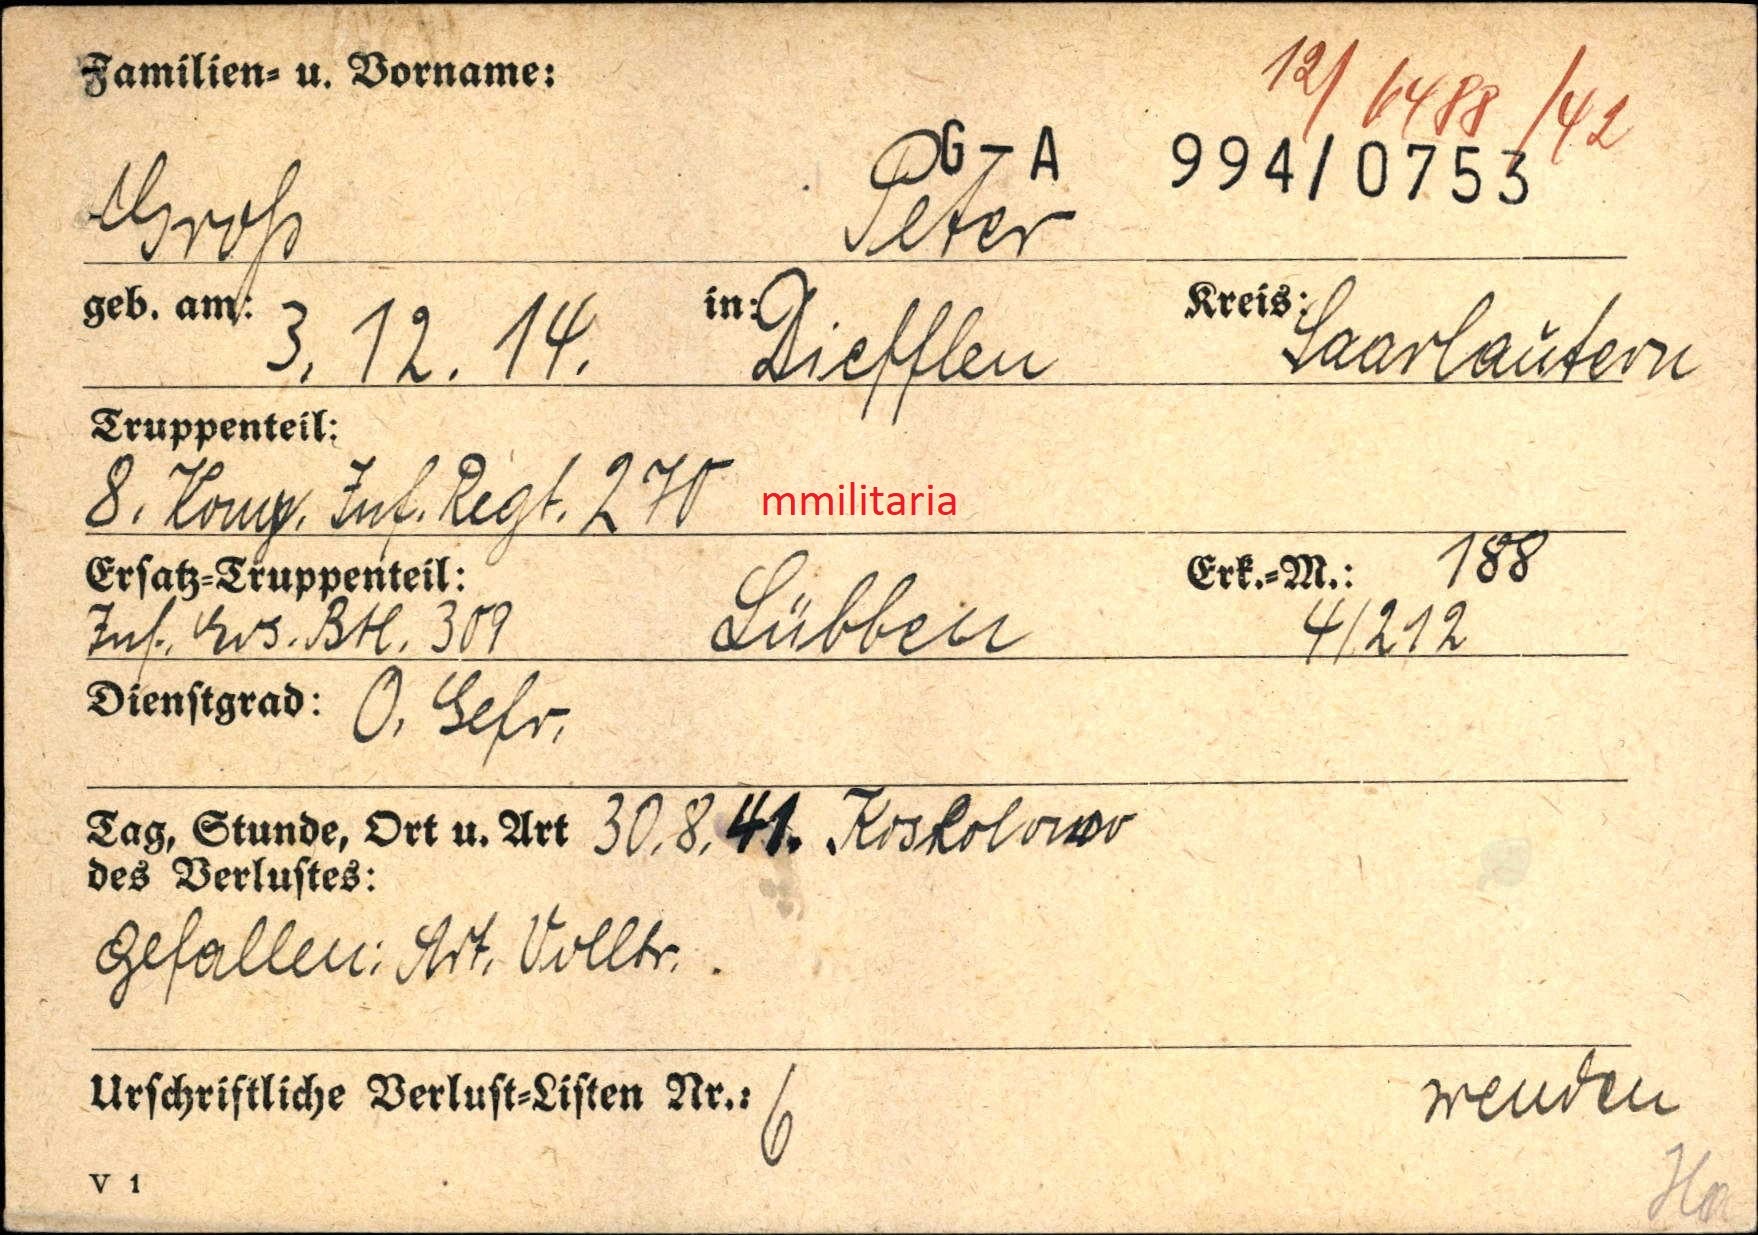 Familien- u. Vorname:
12/6488/42
G-A 994/0753
Groß Peter
geb. am: 3. 12. 14. in: Diefflen Kreis: Saarlautern
Truppenteil:
8. Komp. Inf. Regt. 270
mmilitaria
Ersatz-Truppenteil: Erk.-M.: 188
Inf. Ers. Btl. 309 Lübben 4/212
Dienstgrad: O. Gefr.
Tag, Stunde, Ort u. Art 30.8.41. Koskolowo
des Verlustes:
gefallen: Art. Volltr.
Urschriftliche Verlust-Listen Nr.: 6
wenden
V 1